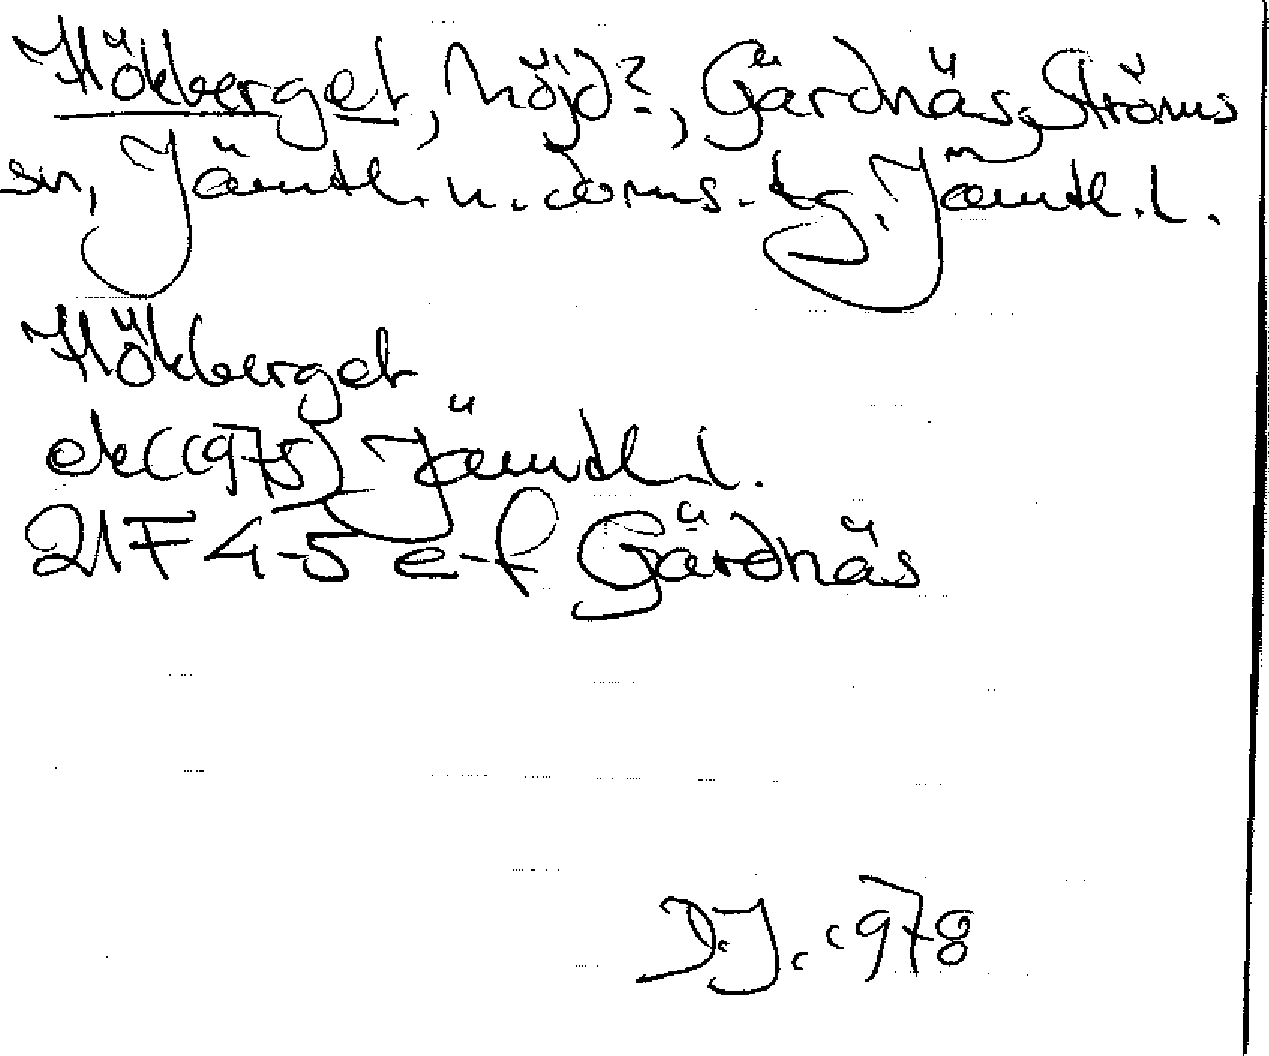 Hökberget, höjd?, Gärdnäs, Ströms
sn, Jämtl. n. doms. tg. Jämtl. l.
Hökberget
ek (1975) Jämtl. l.
21F 4-5 e-f Gärdnäs
D.J. 1978